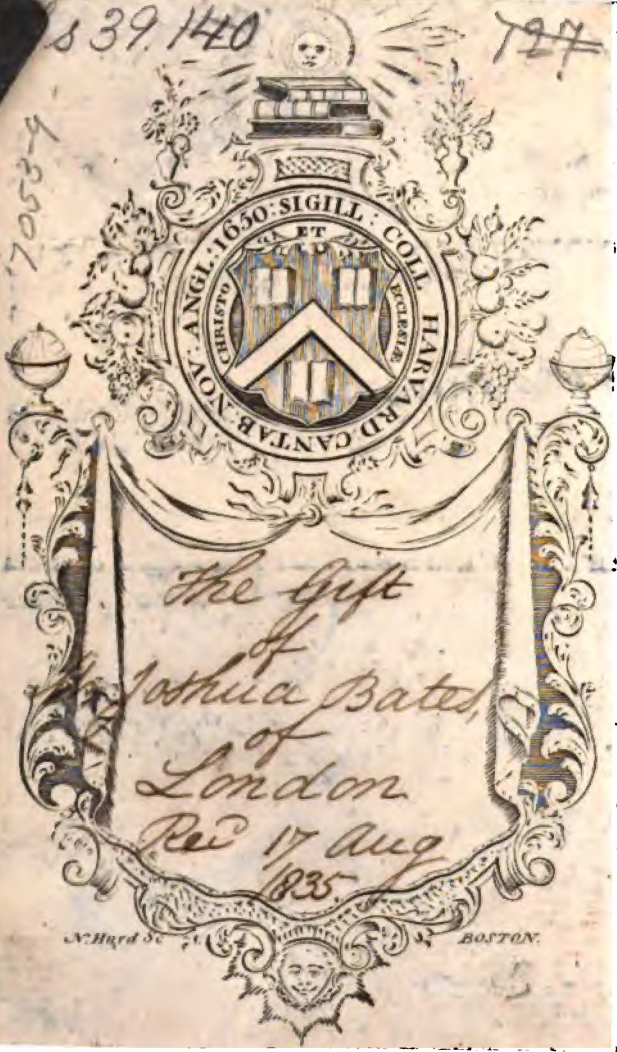 s 39.140
127
7053-9
SIGILL : COLL HARVARD CANTAB : NOV : ANGL : 1650 :
ET
CHRISTO
ECCLESIÆ
The Gift
of
Joshua Bates,
of
London
Rec'd 17 Aug
1835.
N. Hurd Sc
BOSTON.